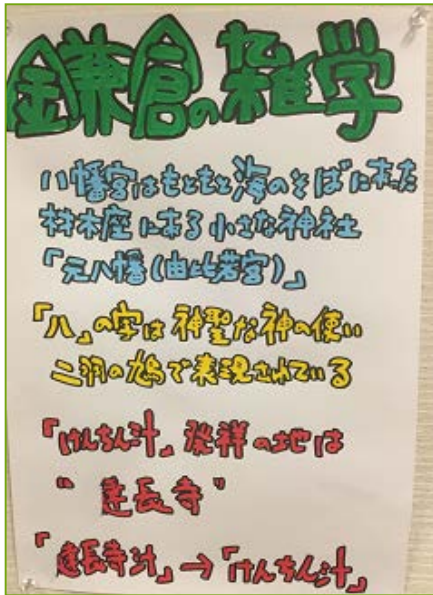 鎌倉の雑学
八幡宮はもともと海のそばにあった
材木座にある小さな神社
「元八幡(由比若宮)」
「八」の字は神聖な神の使い
二羽の鳩で表現されている
「けんちん汁」発祥の地は
"建長寺"
「建長寺汁」→「けんちん汁」